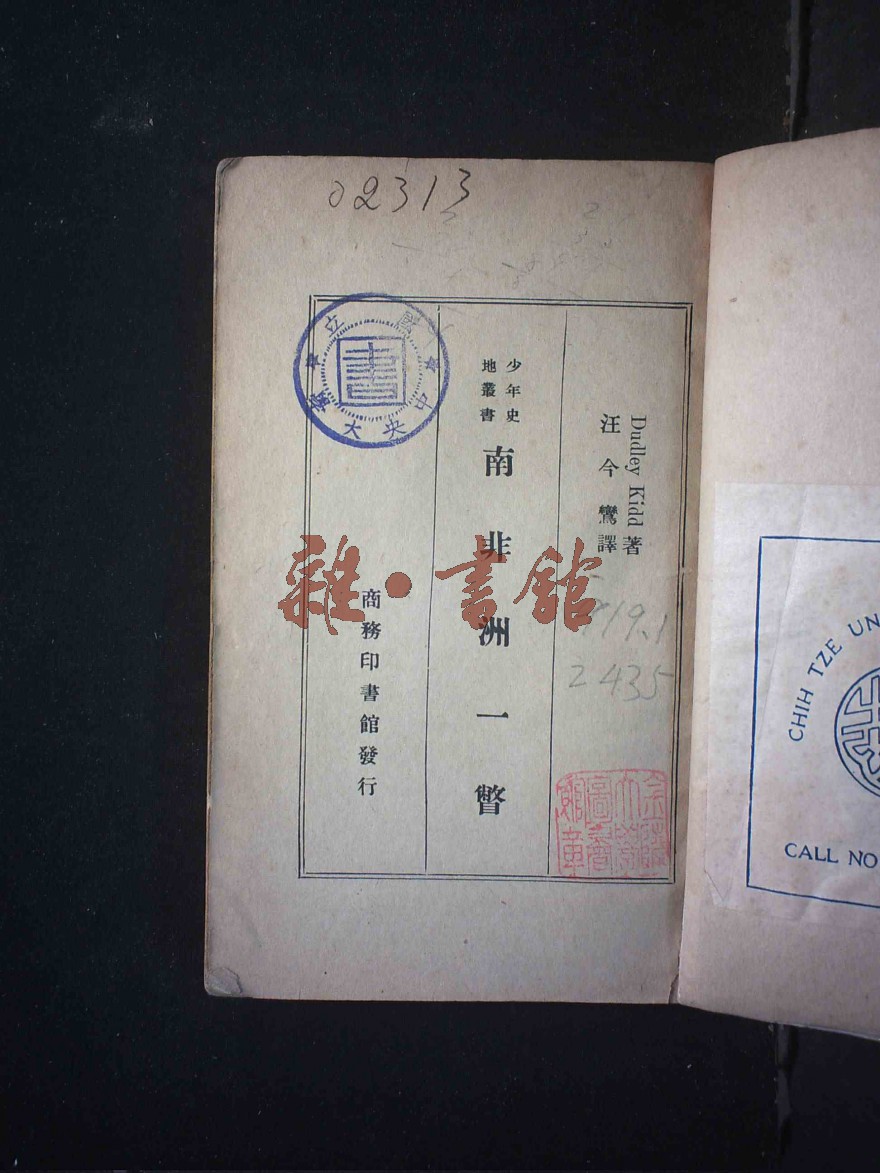 02313
Dudley Kidd 著
汪今鸞譯
少年史
地叢書
南非洲一瞥
商務印書館發行
國立中央大學
書
雜·書館
919.1
2435
CHIH TZE UN
CALL NO